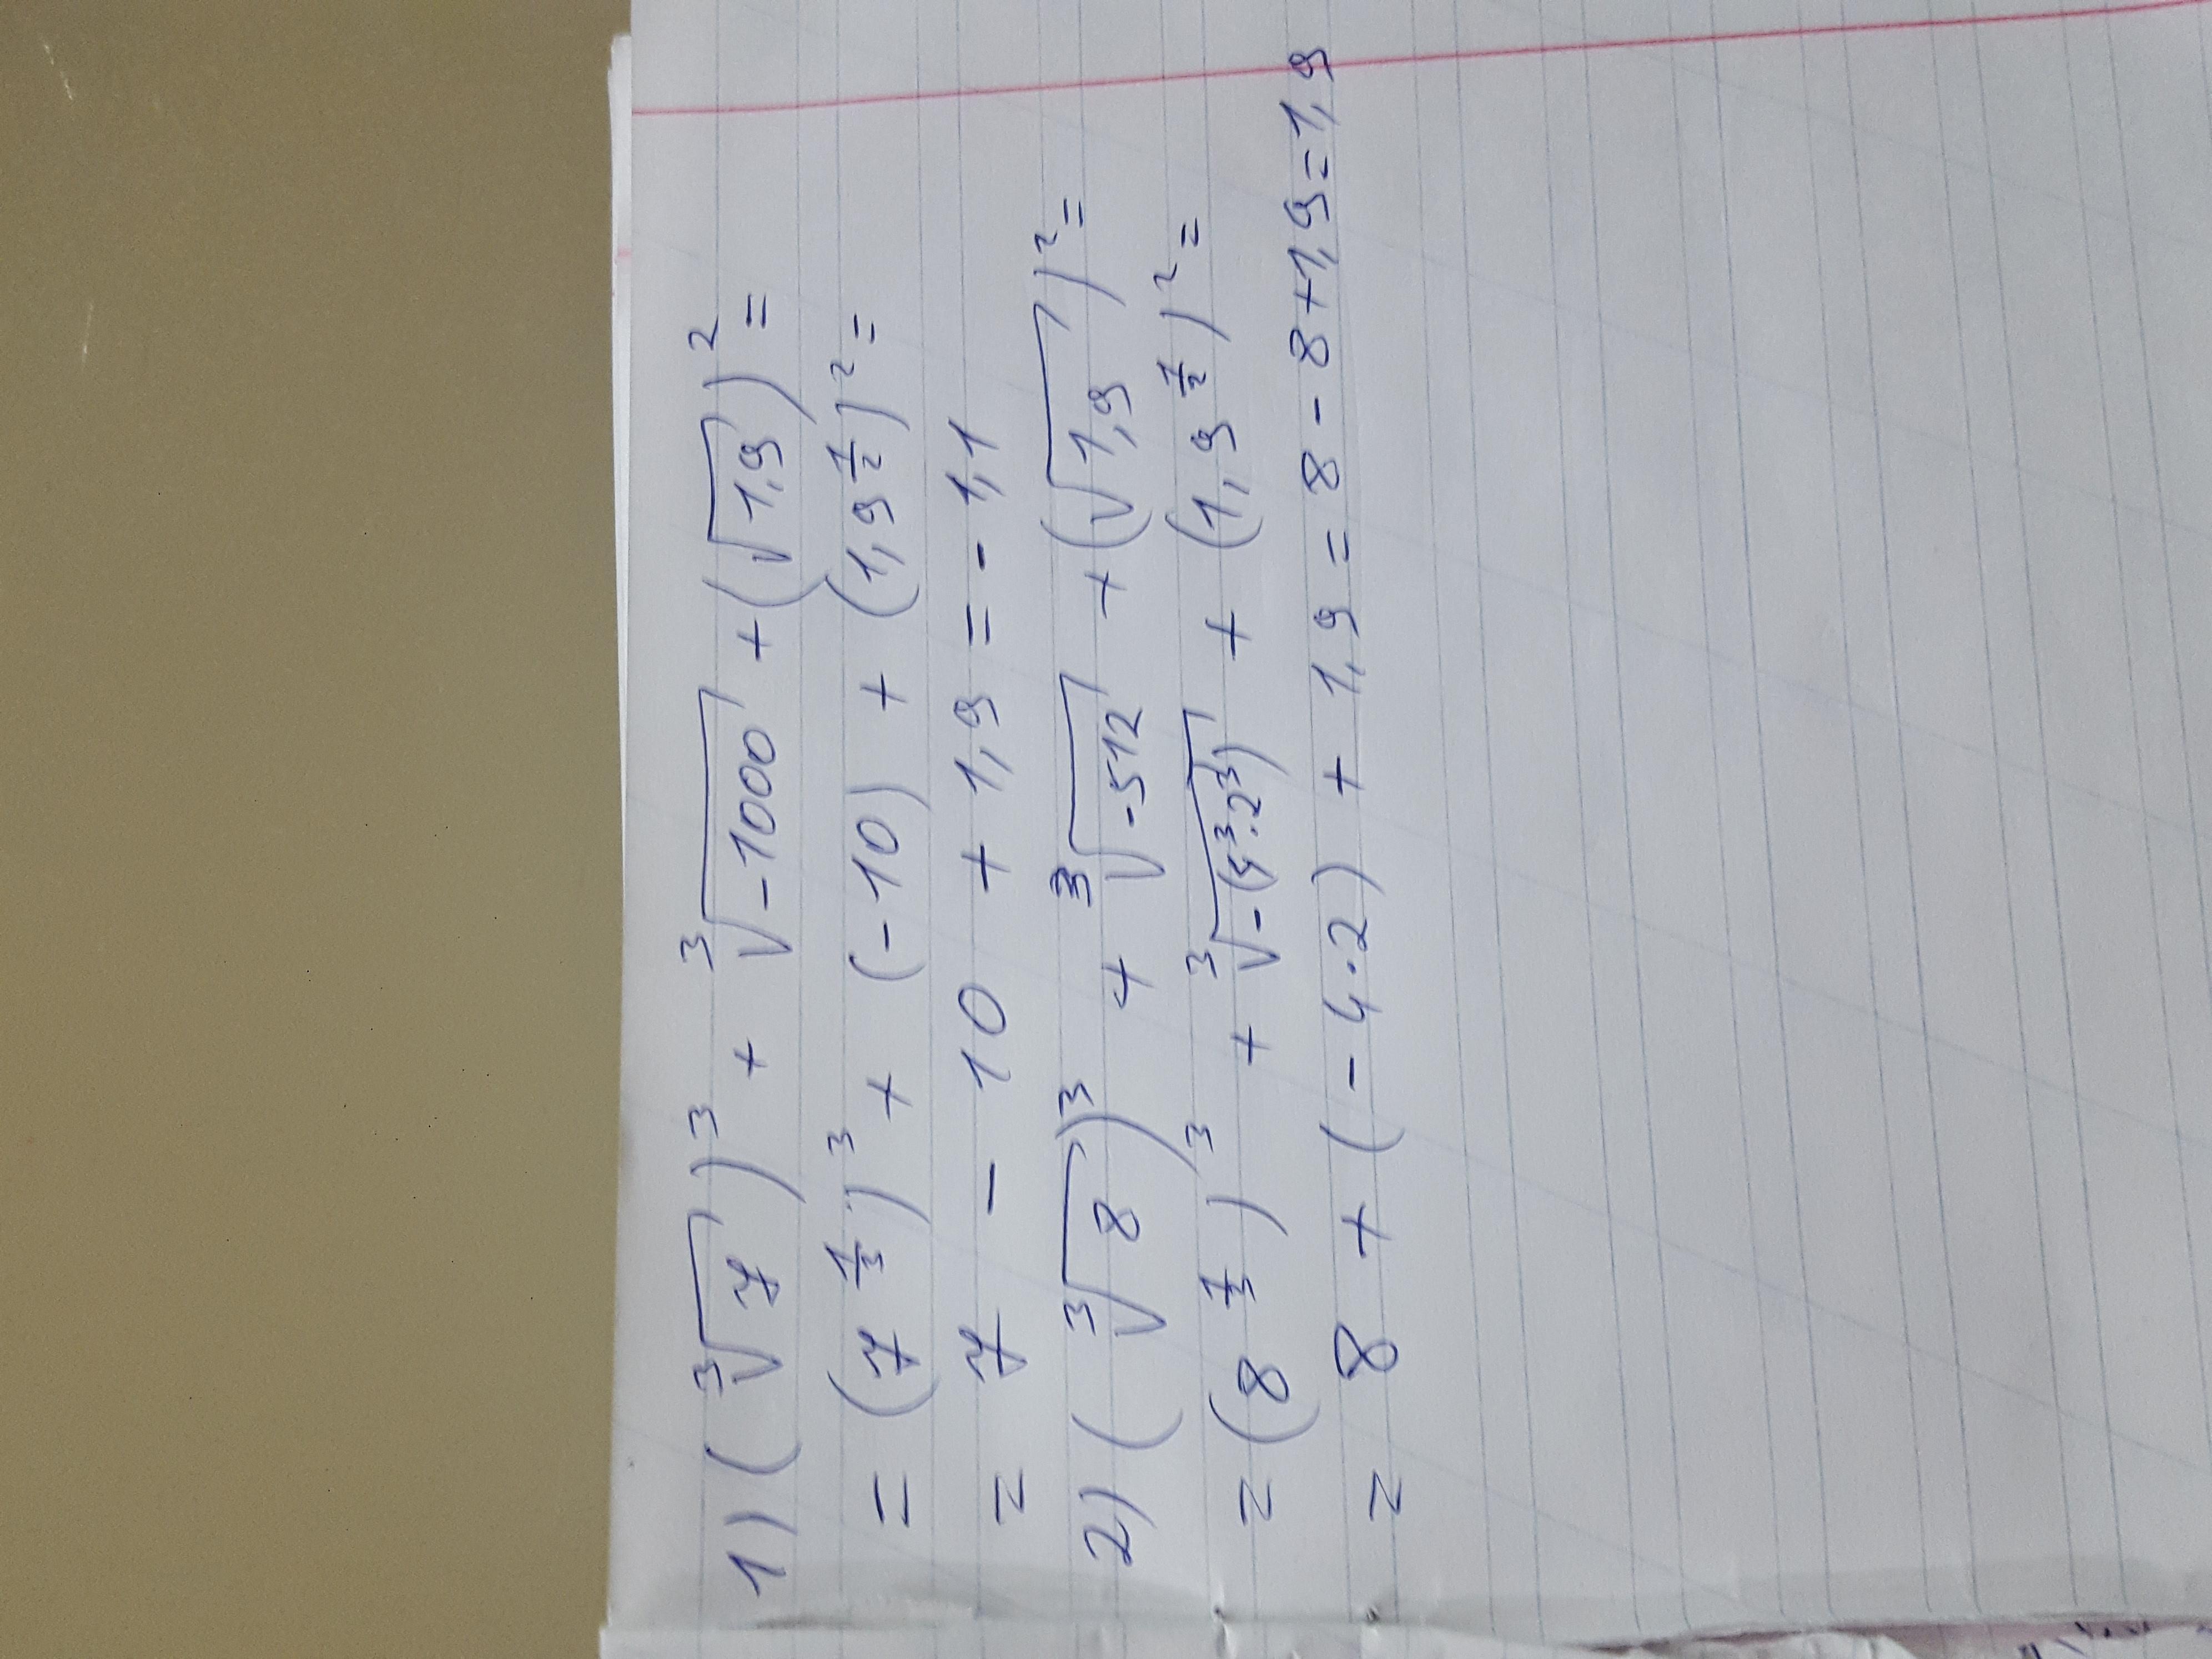 1) (∛7)³ + ∛-1000 + (√1,9)² =
= (7^(1/3))³ + (-10) + (1,9^(1/2))² =
= 7 - 10 + 1,9 = - 1,1
2) (∛8)³ + ∛-512 + (√1,9)² =
= (8^(1/3))³ + ∛-(4³·2³) + (1,9^(1/2))² =
= 8 + (-4·2) + 1,9 = 8 - 8 + 1,9 = 1,9